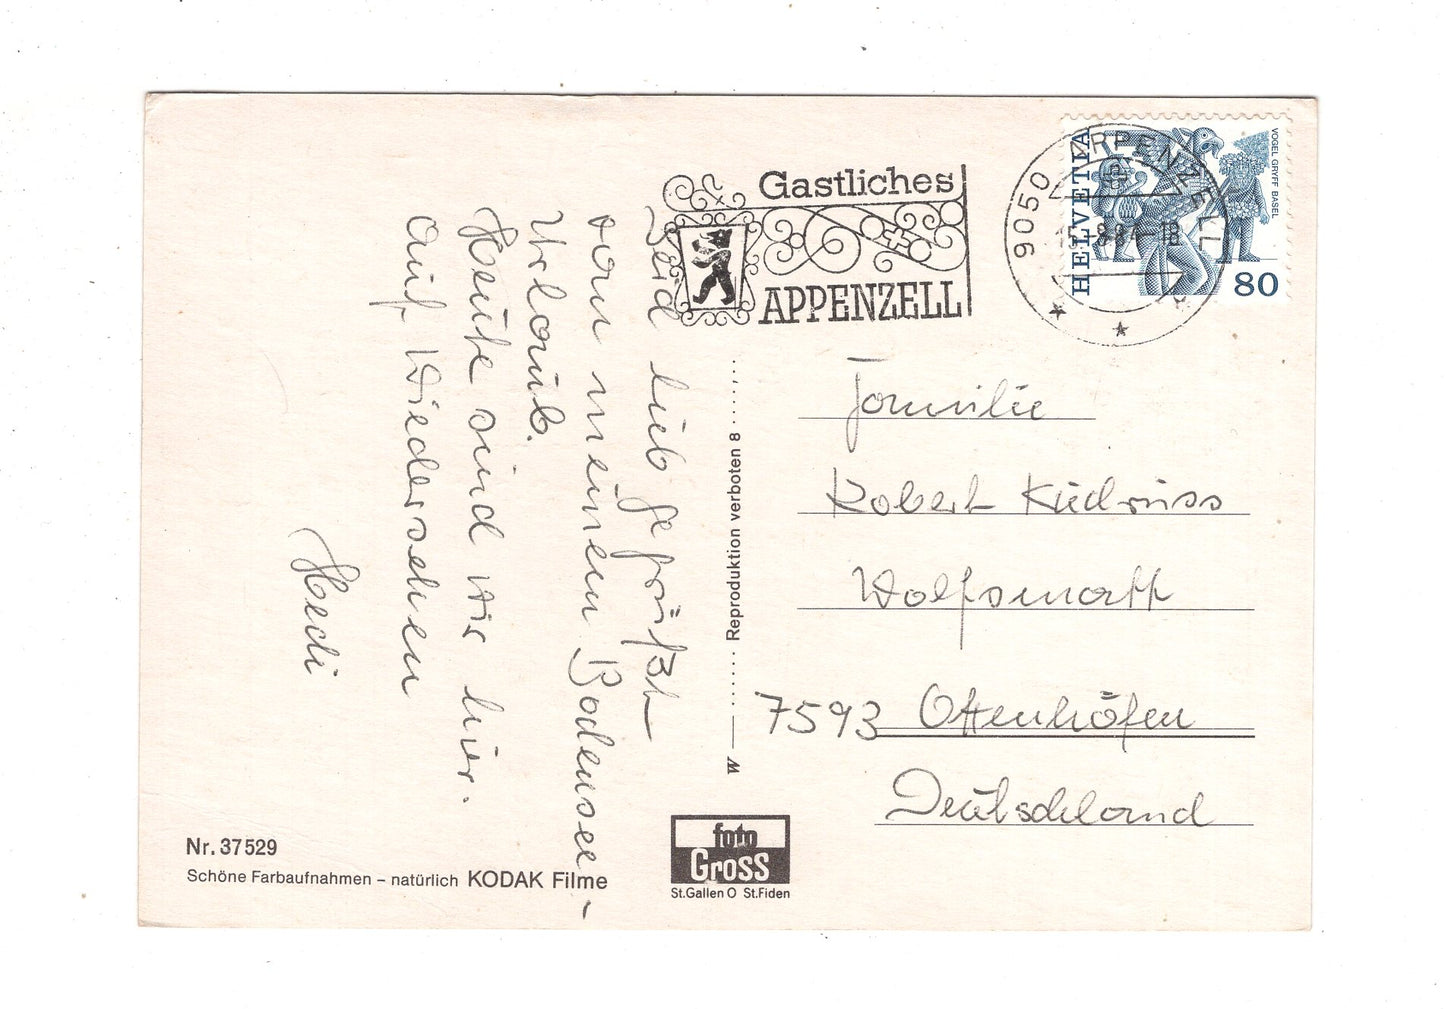 Seid lieb gegrüßt
von meinem Bodensee-
Urlaub.
Heute sind wir hier.
Auf Wiedersehen
Hedi
Nr. 37529
Schöne Farbaufnahmen – natürlich KODAK Filme
W Reproduktion verboten 8
foto
Gross
St.Gallen O St.Fiden
Gastliches
APPENZELL
9050 APPENZELL
HELVETIA
VOGEL GRYFF BASEL
80
Familie
Robert
Wolfsmatt
7593 Ottenhöfen
Deutschland